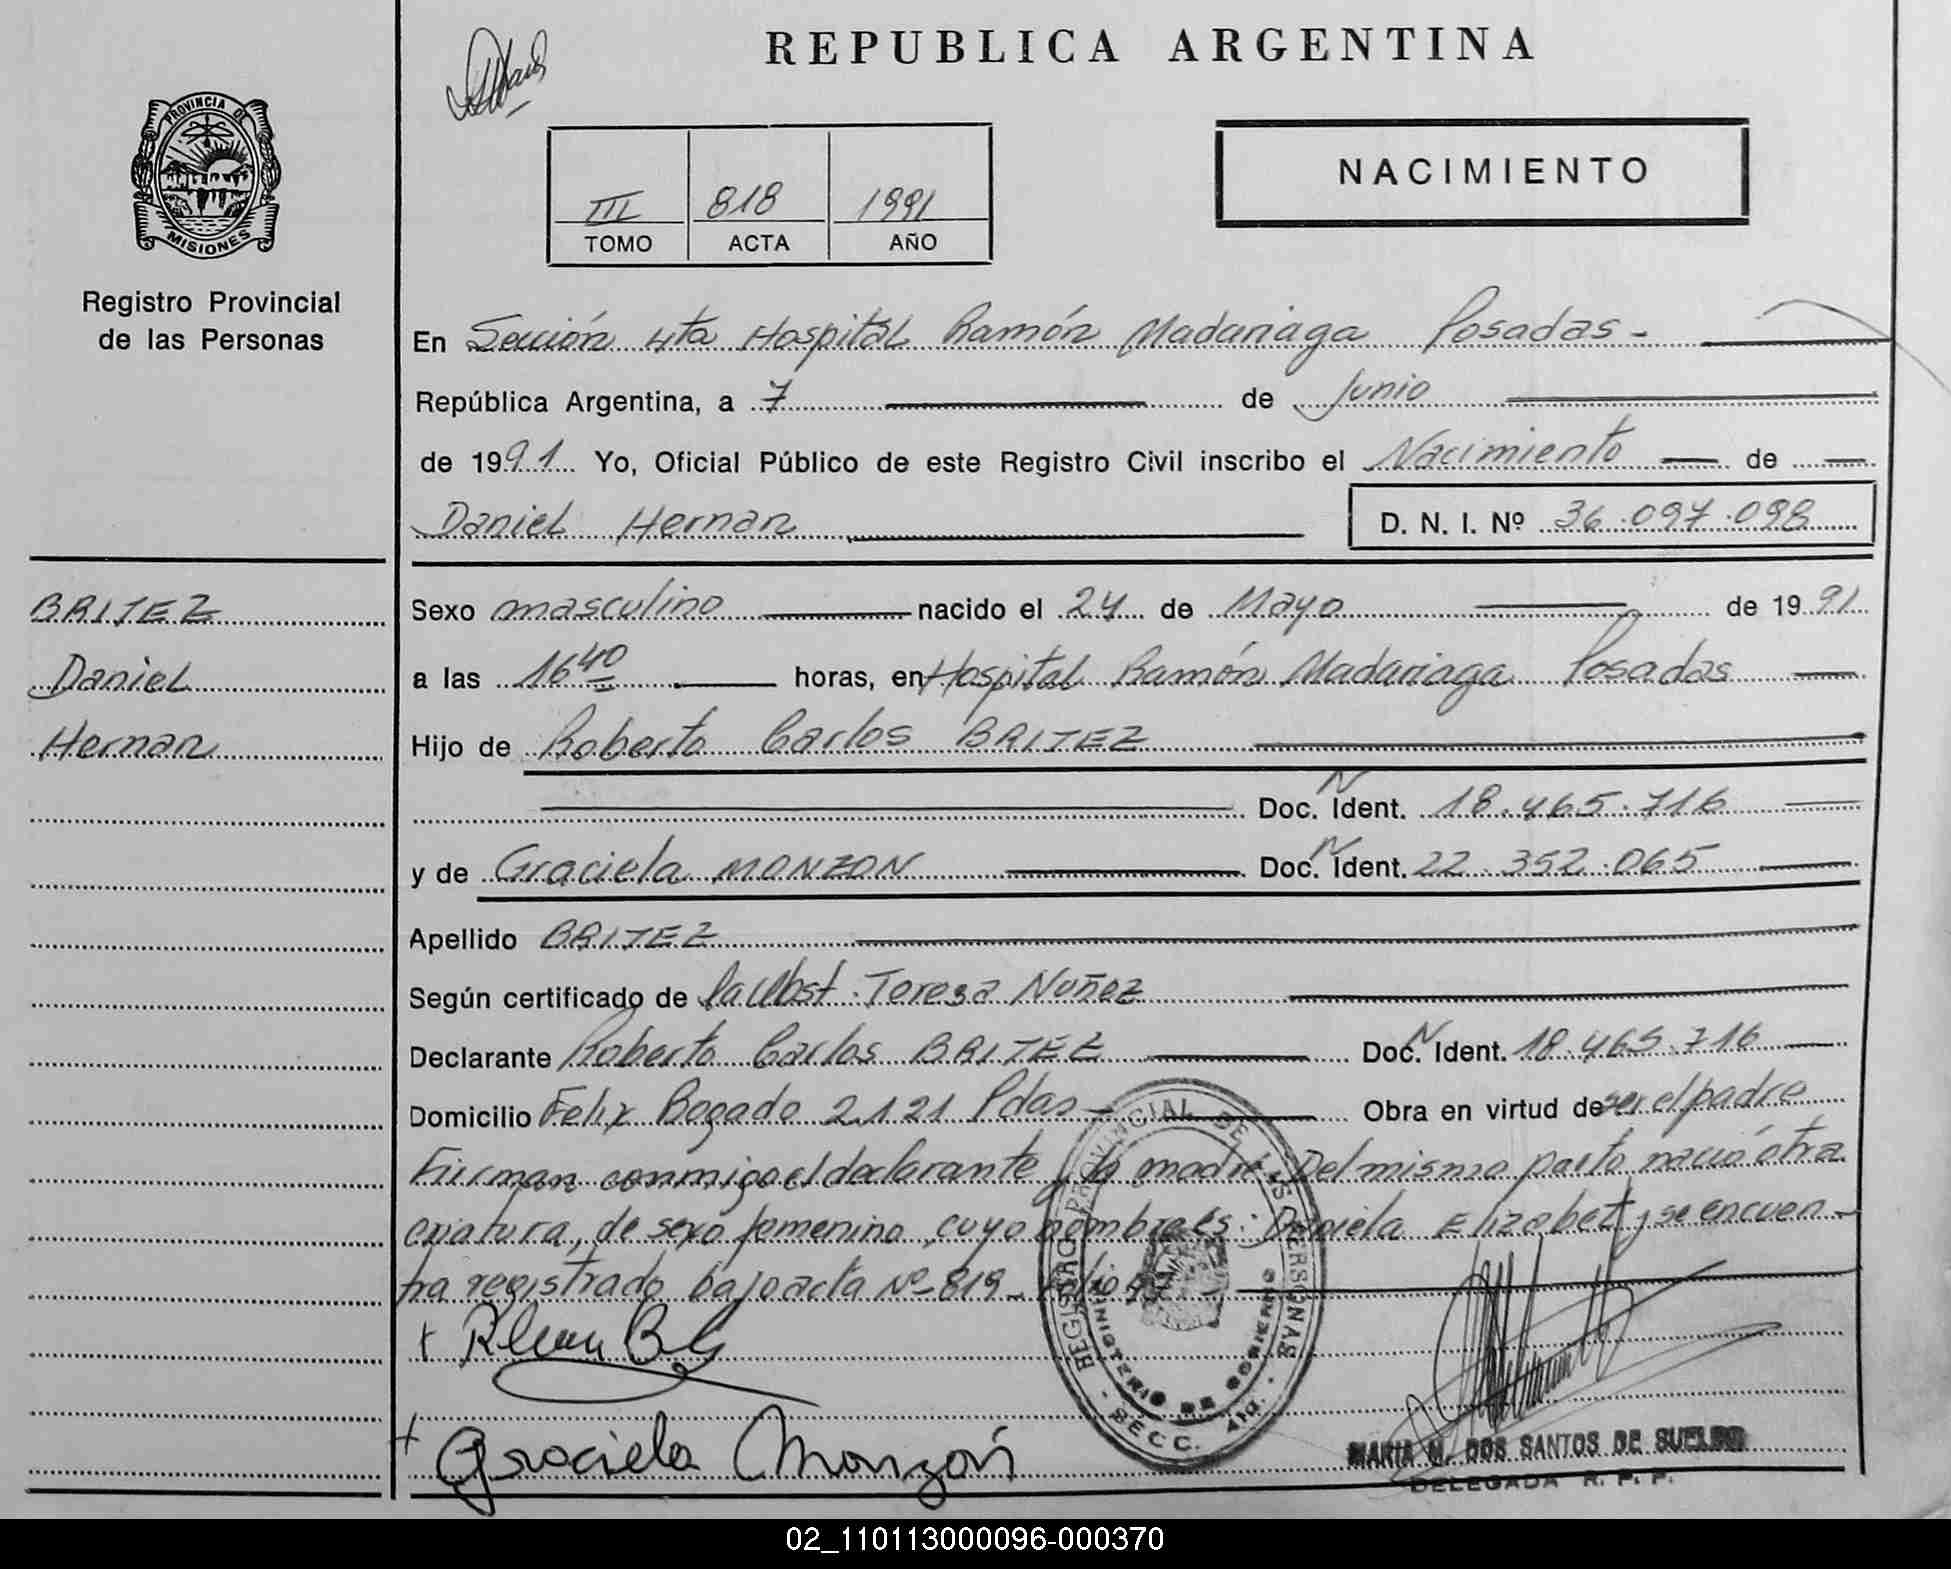 REPUBLICA ARGENTINA
PROVINCIA DE
MISIONES
Registro Provincial
de las Personas
III 818 1991
TOMO ACTA AÑO
NACIMIENTO
En Sección 4ta Hospital Ramón Madariaga Posadas -
República Argentina, a 7 de Junio
de 1991 Yo, Oficial Público de este Registro Civil inscribo el Nacimiento de
Daniel Hernan D. N. I. Nº 36.097.098
BRITEZ
Daniel
Hernan
Sexo masculino nacido el 24 de Mayo de 1991
a las 16 40 horas, en Hospital Ramón Madariaga Posadas
Hijo de Roberto Carlos BRITEZ
Doc. N Ident. 18.465.716
y de Graciela MONZON Doc. N Ident. 22.352.065
Apellido BRITEZ
Según certificado de la Obst. Teresa Nuñez
Declarante Roberto Carlos BRITEZ Doc. N Ident. 18.465.716
Domicilio Felix Bogado 2121 Pdas - Obra en virtud de ser el padre
Firman conmigo el declarante y la madre Del mismo parto nació otra
criatura, de sexo femenino, cuyo nombre es: Daniela Elizabet y se encuen-
tra registrado bajo acta Nº 819 -
REGISTRO PROVINCIAL DE LAS PERSONAS
MINISTERIO DE GOBIERNO
SECC. 4ta.
Graciela Monzón
MARIA M. DOS SANTOS DE SUELDO
DELEGADA R. P. P.
02_110113000096-000370